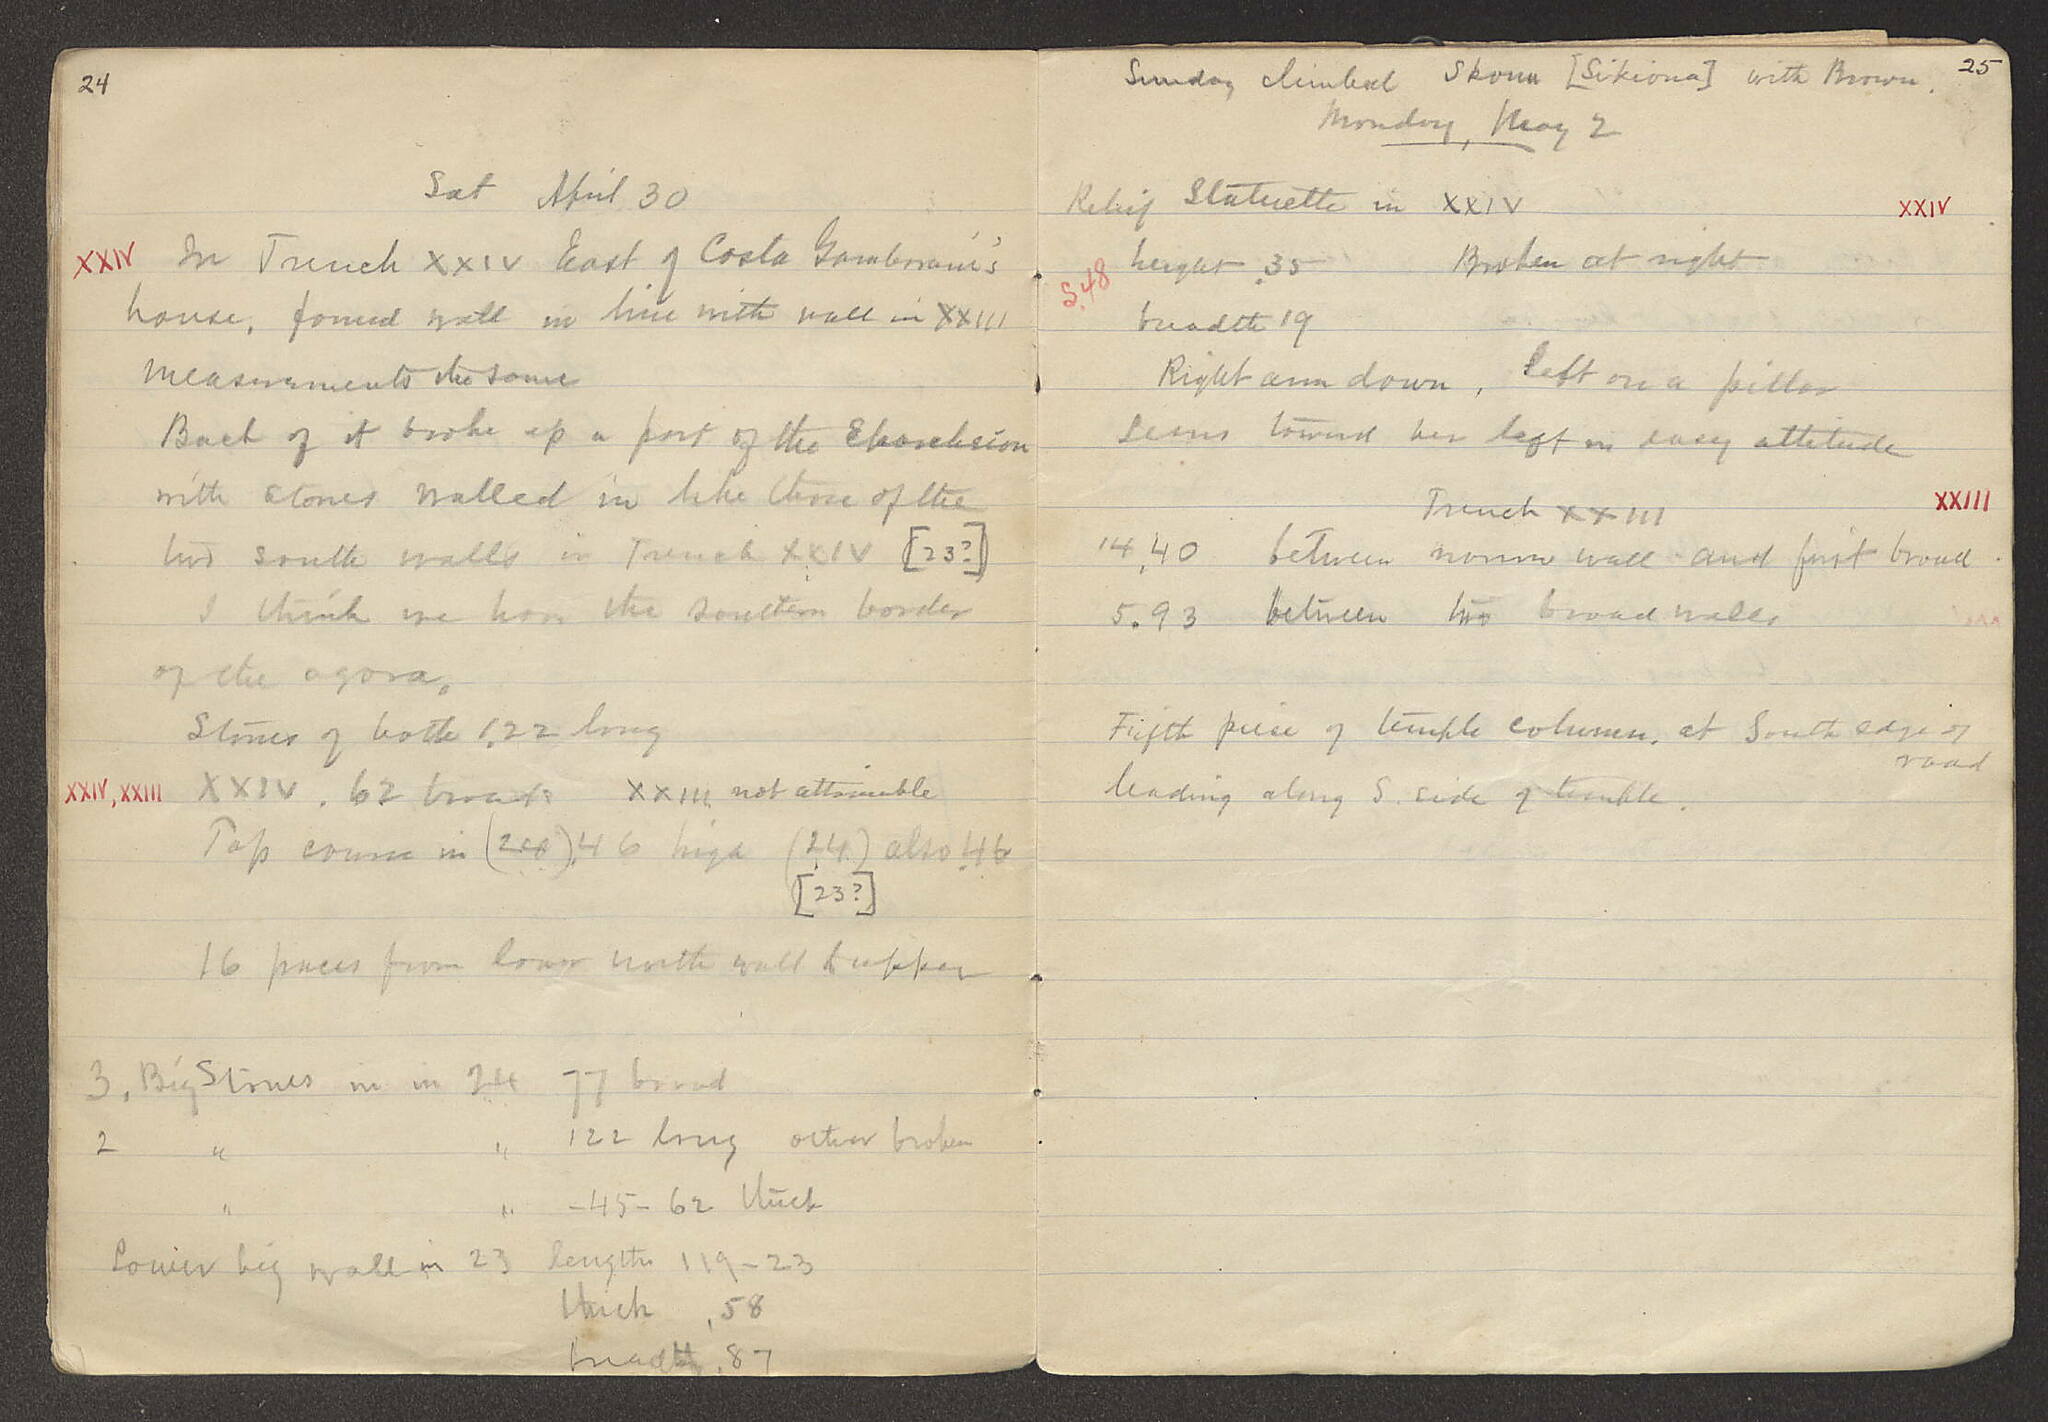 24
Sat April 30
XXIV In Trench XXIV East of Costa
house, found wall in line with wall in XXIII
measurements the same
Back of it broke up a part of the
with stones walled in like those of the
two south walls in Trench XXIV [23?]
I think we have the southern border
of the agora.
Stones of both 1.22 long
XXIV, XXIII XXIV .62 broad XXIII not attainable
Top course in .46 high (24) also .46
[23?]
16 paces from lower north wall to upper
3. Big Stones in in 24 77 broad
2 " " 122 long other broken
" " -45-62 thick
Lower big wall in 23 length 119-23
thick .58
breadth .87
25
Sunday climbed Skona [Sikiona] with Brown.
Monday, May 2
Relief Statuette in XXIV XXIV
S.48 height .35 Broken at right
breadth 19
Right arm down, left on a pillar
Leans toward her left in easy attitude
Trench XXIII XXIII
14.40 between narrow wall and first broad
5.93 between two broad walls
Fifth piece of temple column, at South edge of
road
leading along S. side of temple.